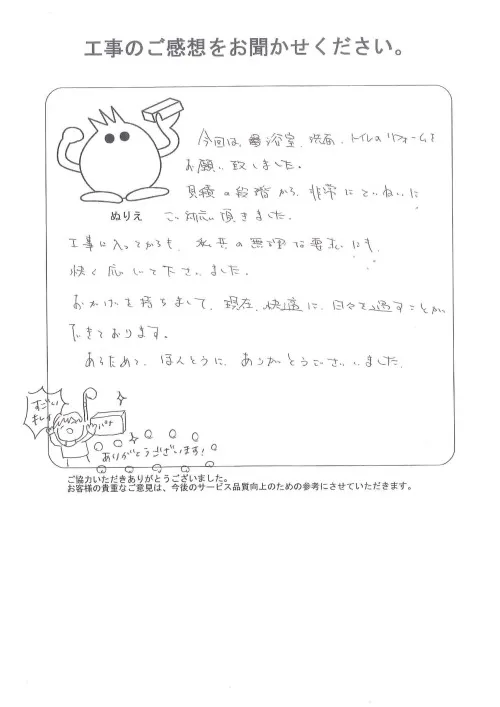 工事のご感想をお聞かせください。
今回は、浴室、洗面、トイレのリフォームを
お願い致しました。
見積の段階から、非常にていねいに
ぬりえ
ご対応頂きました。
工事に入ってからも、私共の無理な要求にも、
快く応じて下さいました。
おかげを持ちまして、現在、快適に、日々を過すことが
できております。
あらためて、ほんとうに、ありがとうございました。
すごい
キレイ
ありがとうございます!
ご協力いただきありがとうございました。
お客様の貴重なご意見は、今後のサービス品質向上のための参考にさせていただきます。